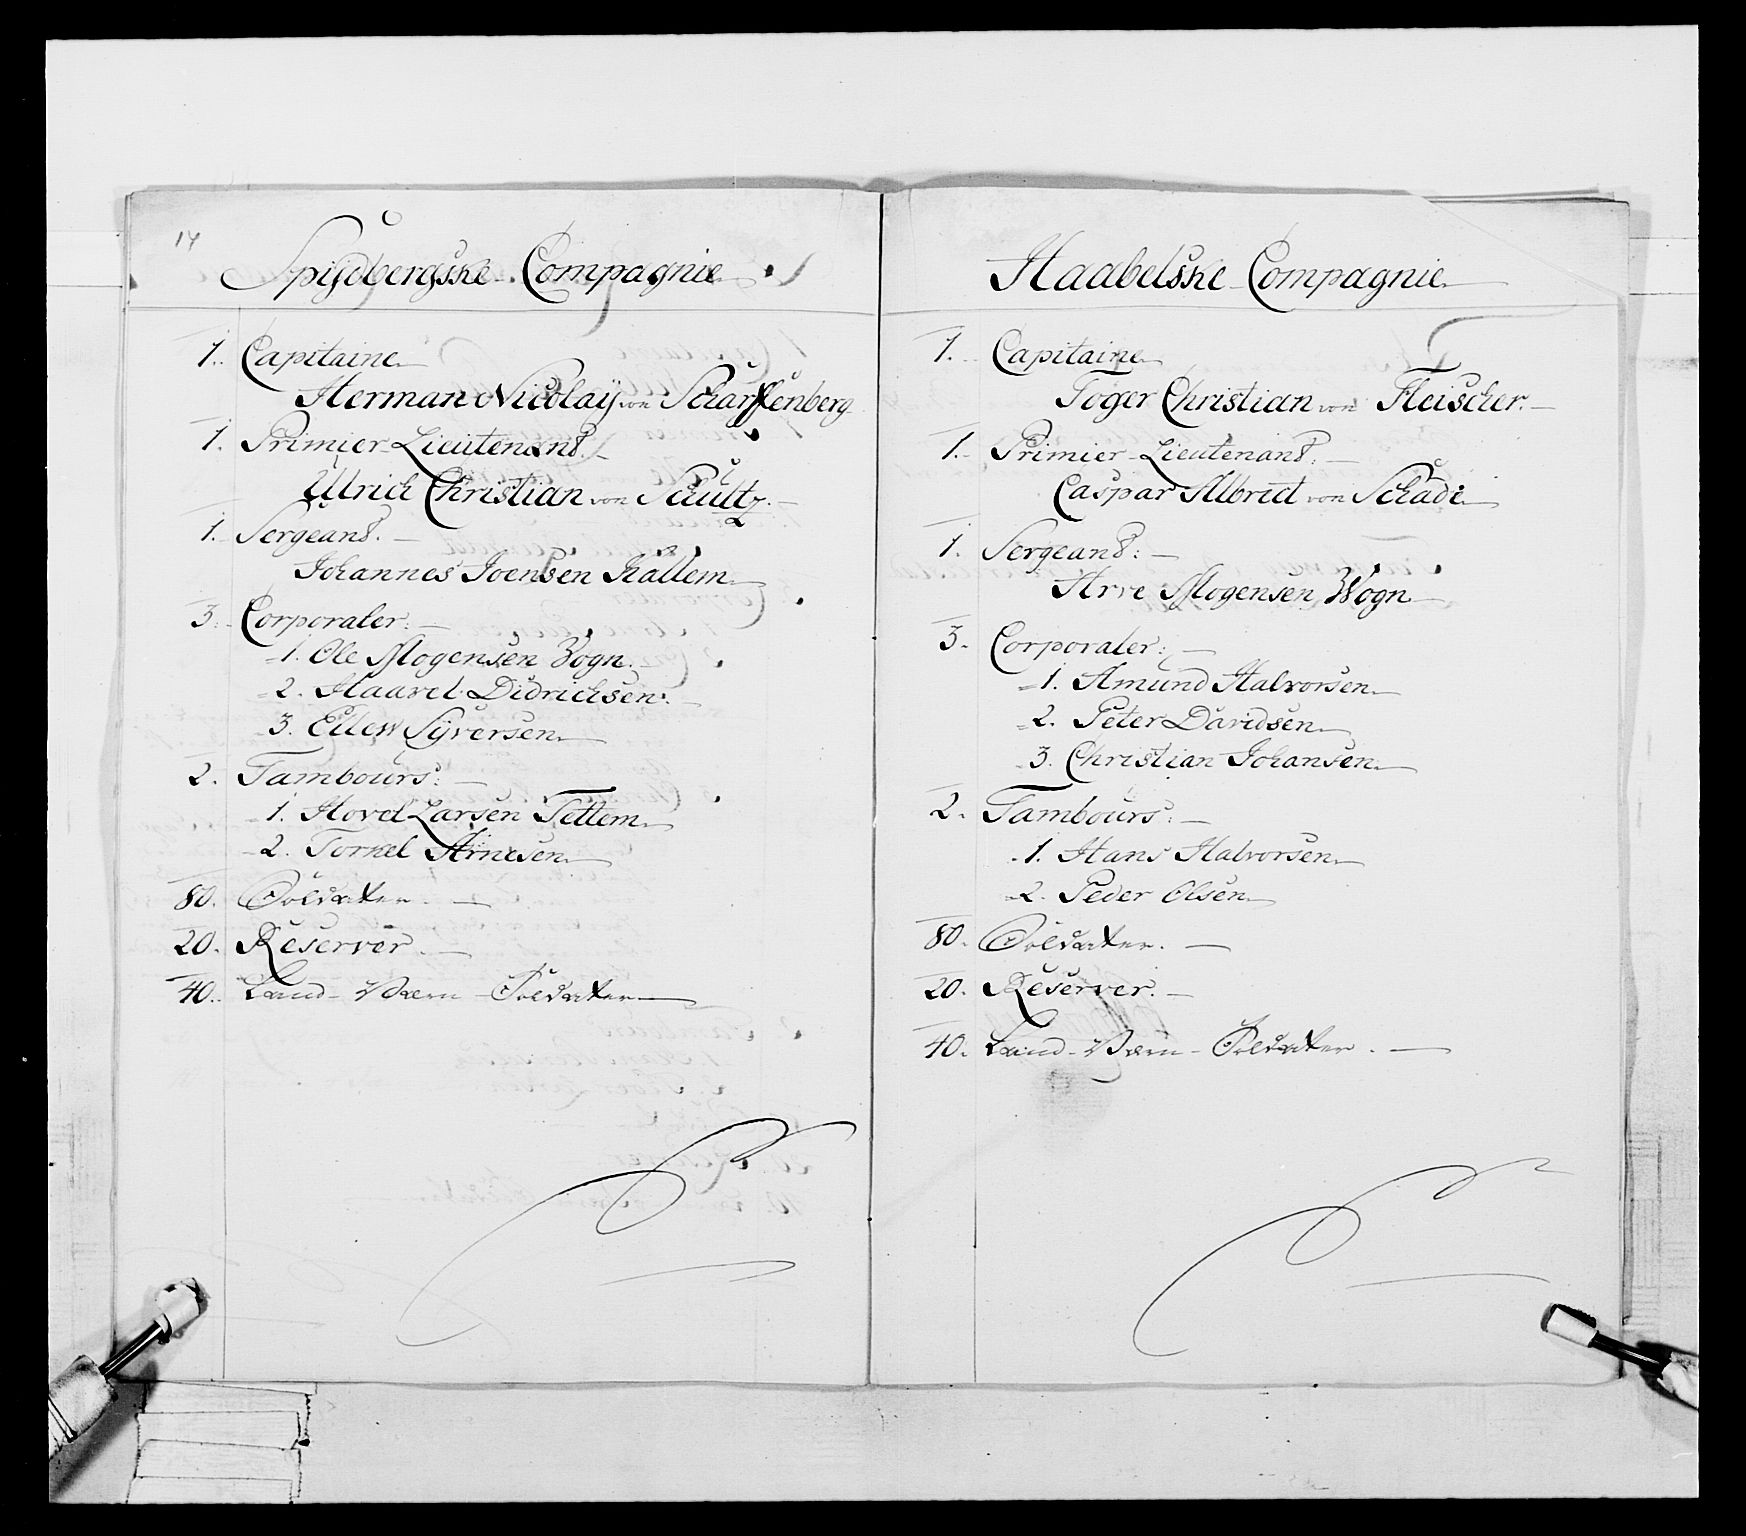 14
Spydbergske Compagnie
1. Capitaine
Herman Nicolaÿ von Scharffenberg
1. Primier-Lieutenant.
Ulrich Christian von Schultz.
1. Sergeant.
Johannes Joensen Kallem
3. Corporaler:
1. Ole Mogensen Wogn.
2. Haavel Didrichsen.
3. Ellew Sÿversen
2. Tambours:
1. Hovel Larsen Tettem
2. Torkel Arnesen
80. Soldater.
20. Reserver.
40. Land-Værn-Soldater
Haabelske Compagnie
1. Capitaine
Toger Christian von Fleischer.
1. Primier-Lieutenant.
Caspar Albret von Schade
1. Sergeant:
Arve Mogensen Wogn
3. Corporaler:
1. Amund Halvorsen
2. Peter Davidsen
3. Christian Johansen
2. Tambours:
1. Hans Halvorsen
2. Peder Olsen
80. Soldater.
20. Reserver.
40. Land-Værn-Soldater.